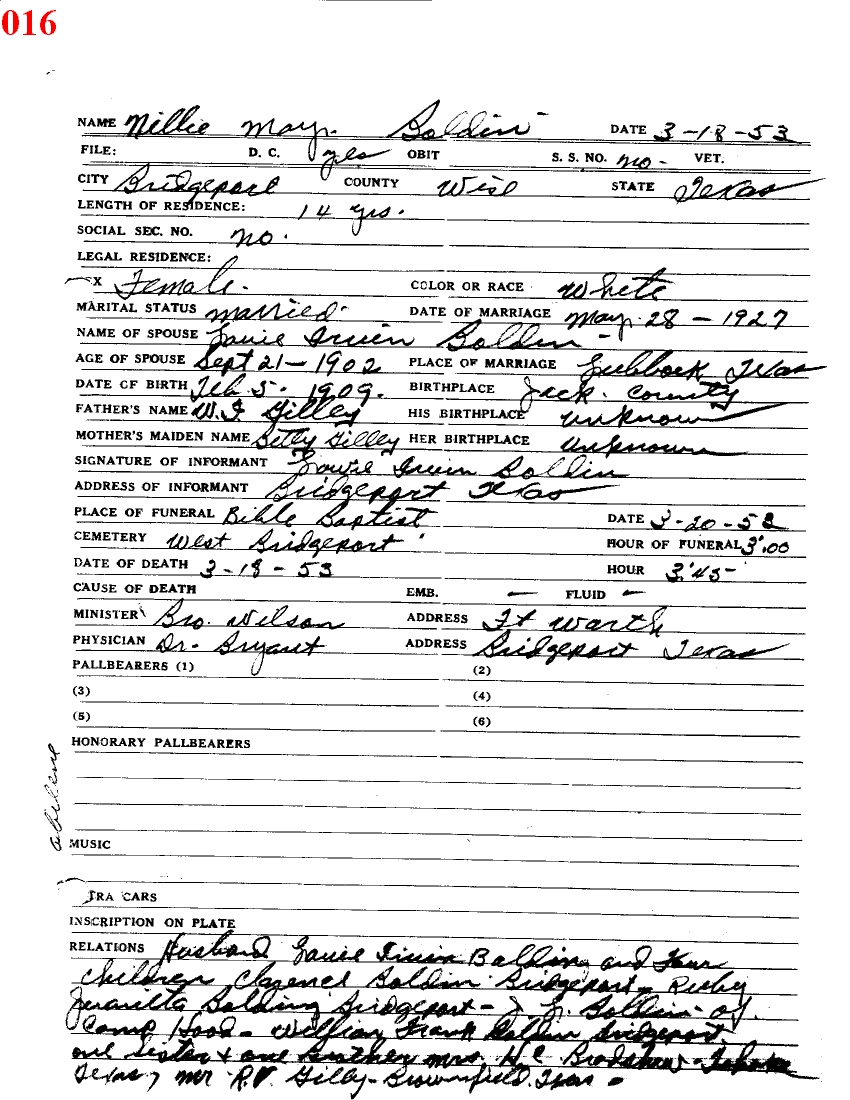 016
NAME Nillie May. Boldin DATE 3-18-53
FILE: D. C. yes OBIT S. S. NO. no- VET.
CITY Bridgeport COUNTY Wise STATE Texas
LENGTH OF RESIDENCE: 14 yrs.
SOCIAL SEC. NO. no.
LEGAL RESIDENCE:
X Female. COLOR OR RACE White
MARITAL STATUS married. DATE OF MARRIAGE May. 28 - 1927
NAME OF SPOUSE Irvin Boldin -
AGE OF SPOUSE Sept 21-1902 PLACE OF MARRIAGE Lubbock Texas
DATE OF BIRTH Feb. 5. 1909. BIRTHPLACE Jack. County
FATHER'S NAME Gilley HIS BIRTHPLACE unknown
MOTHER'S MAIDEN NAME Betty Gilley HER BIRTHPLACE unknown
SIGNATURE OF INFORMANT Irvin Boldin
ADDRESS OF INFORMANT Bridgeport Texas
PLACE OF FUNERAL Bible Baptist DATE 3-20-53
CEMETERY West Bridgeport HOUR OF FUNERAL 3:00
DATE OF DEATH 3-18-53 HOUR 3:45-
CAUSE OF DEATH EMB. — FLUID —
MINISTER Bro. Wilson ADDRESS Ft Warth
PHYSICIAN Dr. Bryant ADDRESS Bridgeport Texas
PALLBEARERS (1) (2)
(3) (4)
(5) (6)
HONORARY PALLBEARERS
abilene
MUSIC
TRA CARS
INSCRIPTION ON PLATE
RELATIONS Husband Irvin Balding and Four
children Clarence Boldin Bridgeport- Ruby
Juanilta Bolding Bridgeport - J. L. Boldin- of
Camp Hood- William Frank Boldin Bridgeport,
one Sister + one brother mrs. H.C. Bradshaw - Tahoka
Texas, mr R.V. Gilly- Brownfield. Texas -